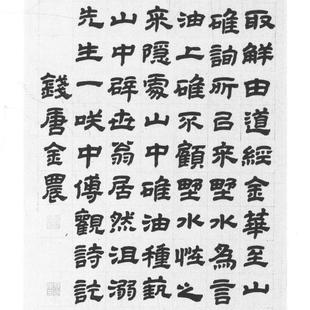 取鮮由道經金華至山
碓詢所㠯来野水為言
油上碓不顧野水性之
来隱處山中碓油種藝
山中辟世翁居然沮溺
先生一咲中傅觀詩訖
錢唐金農